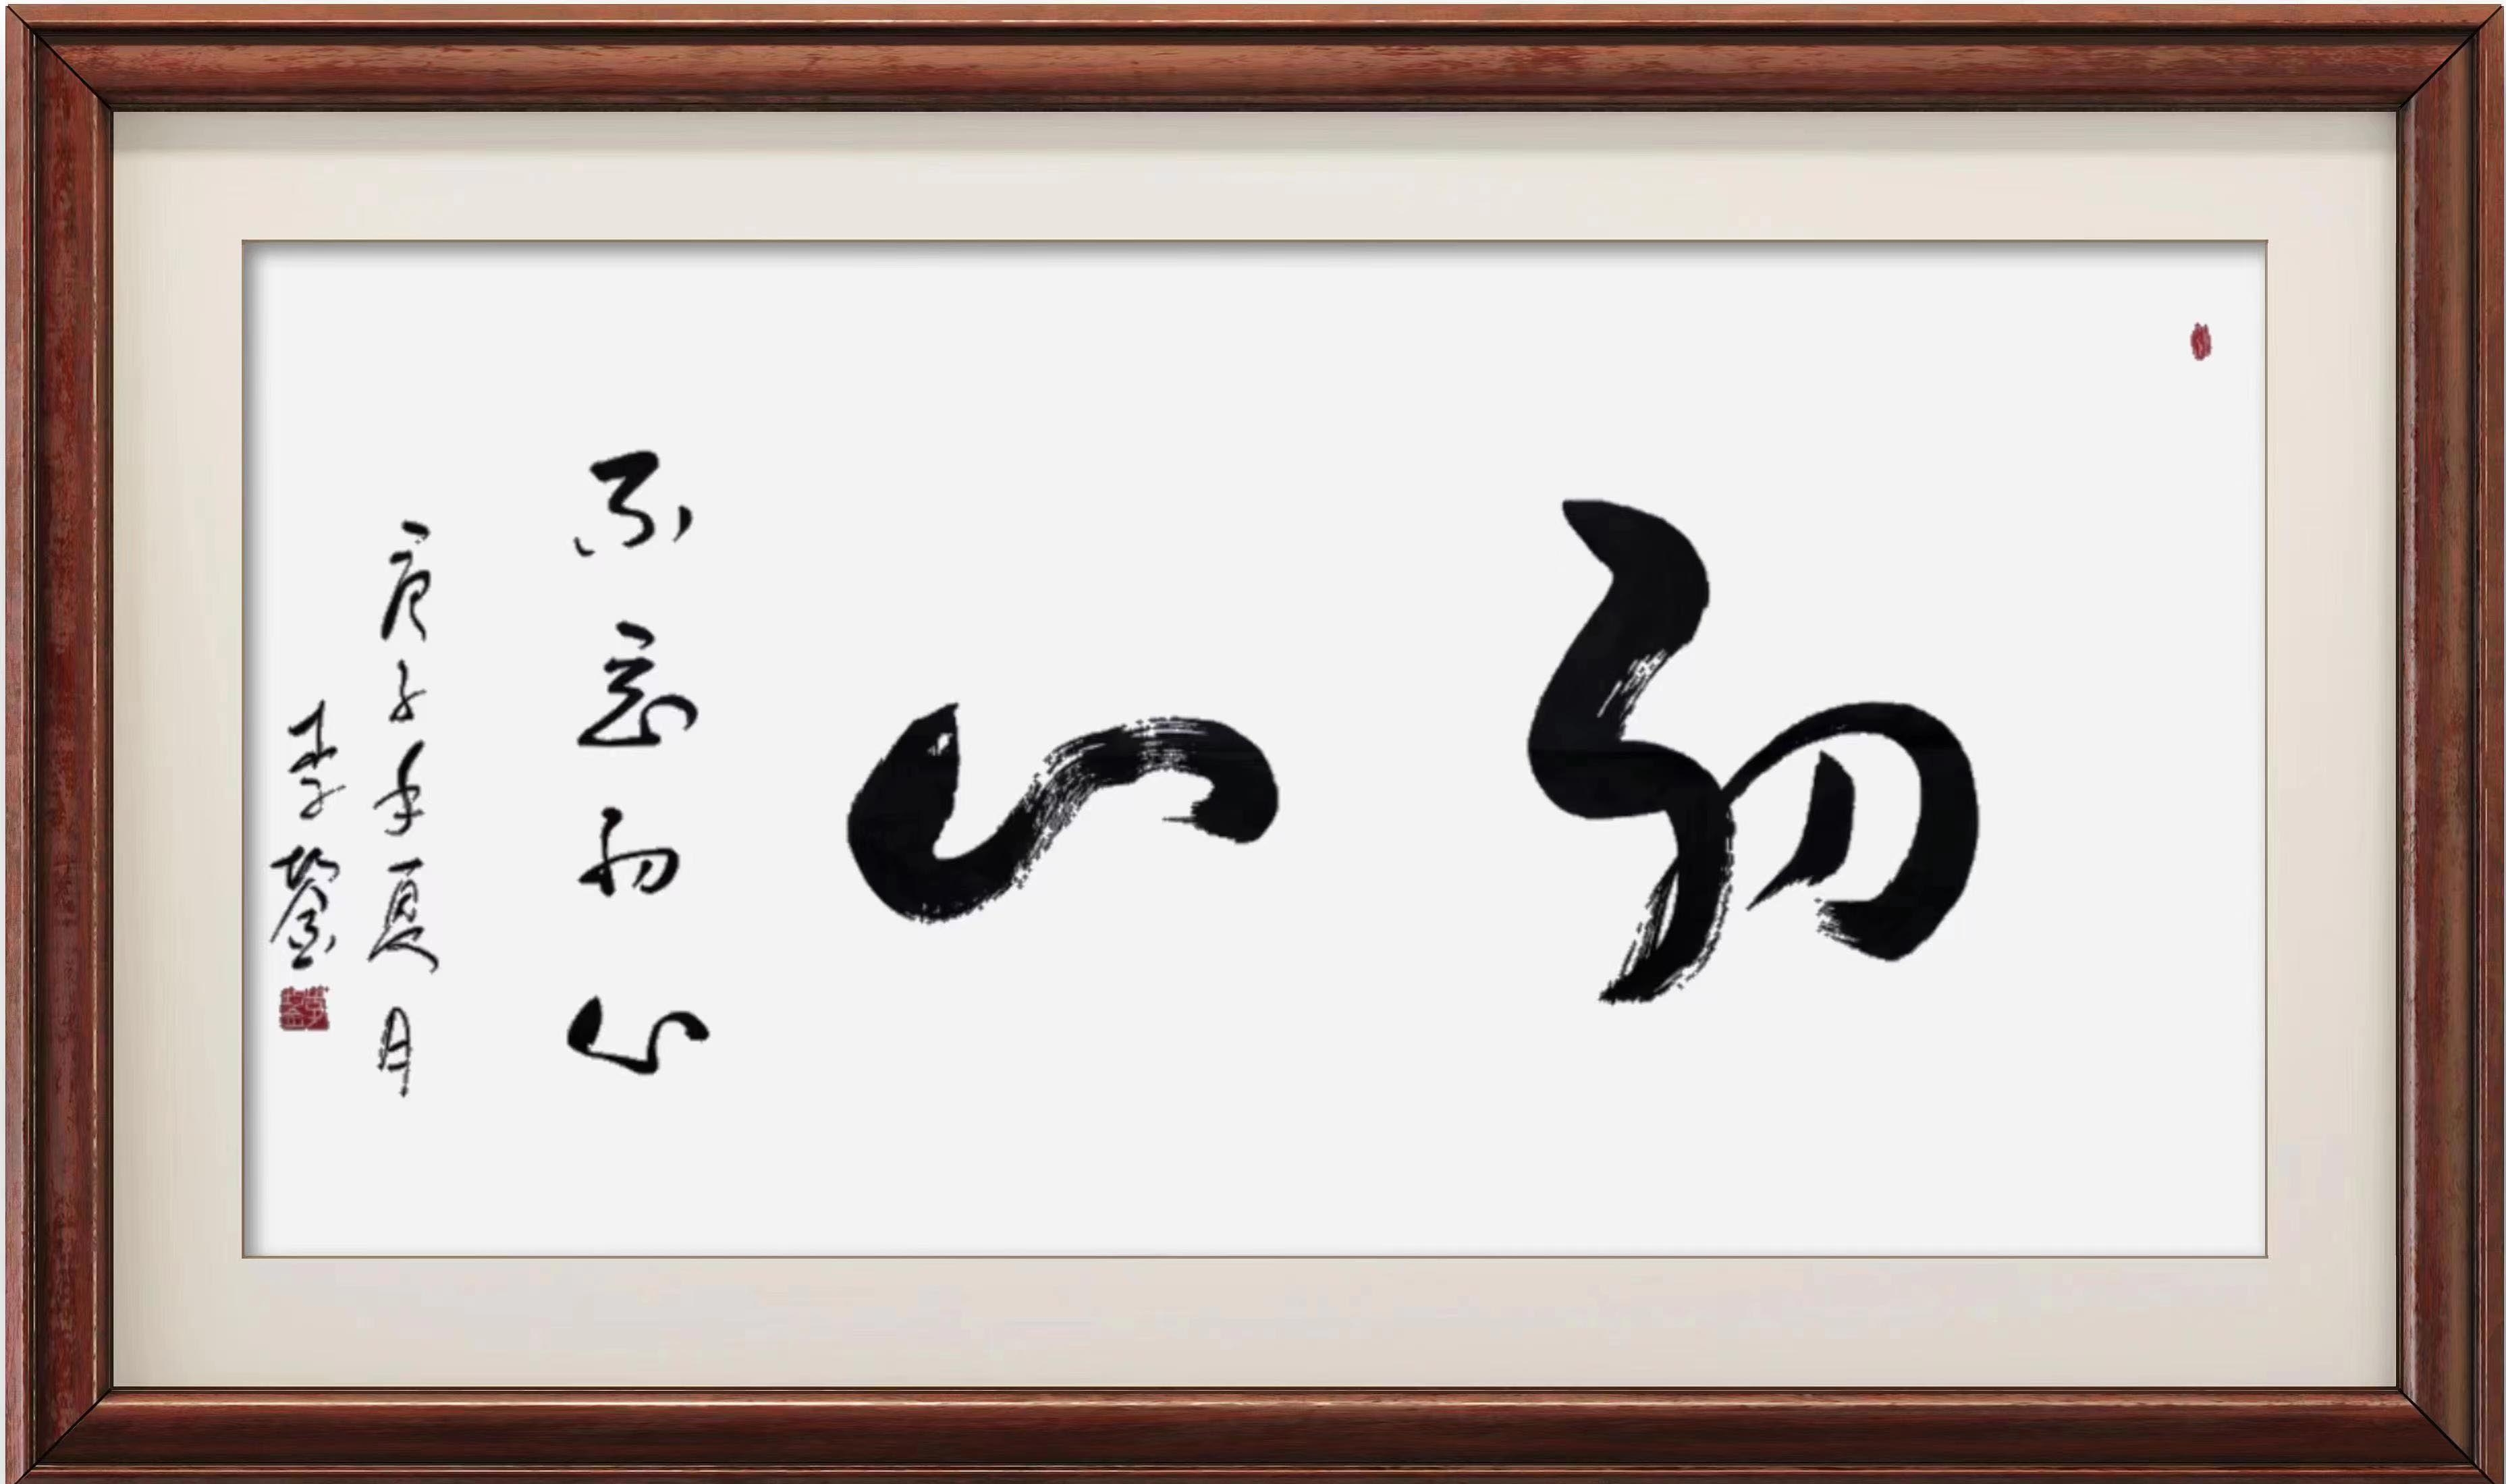 初心
不忘初心
庚子年夏月
李